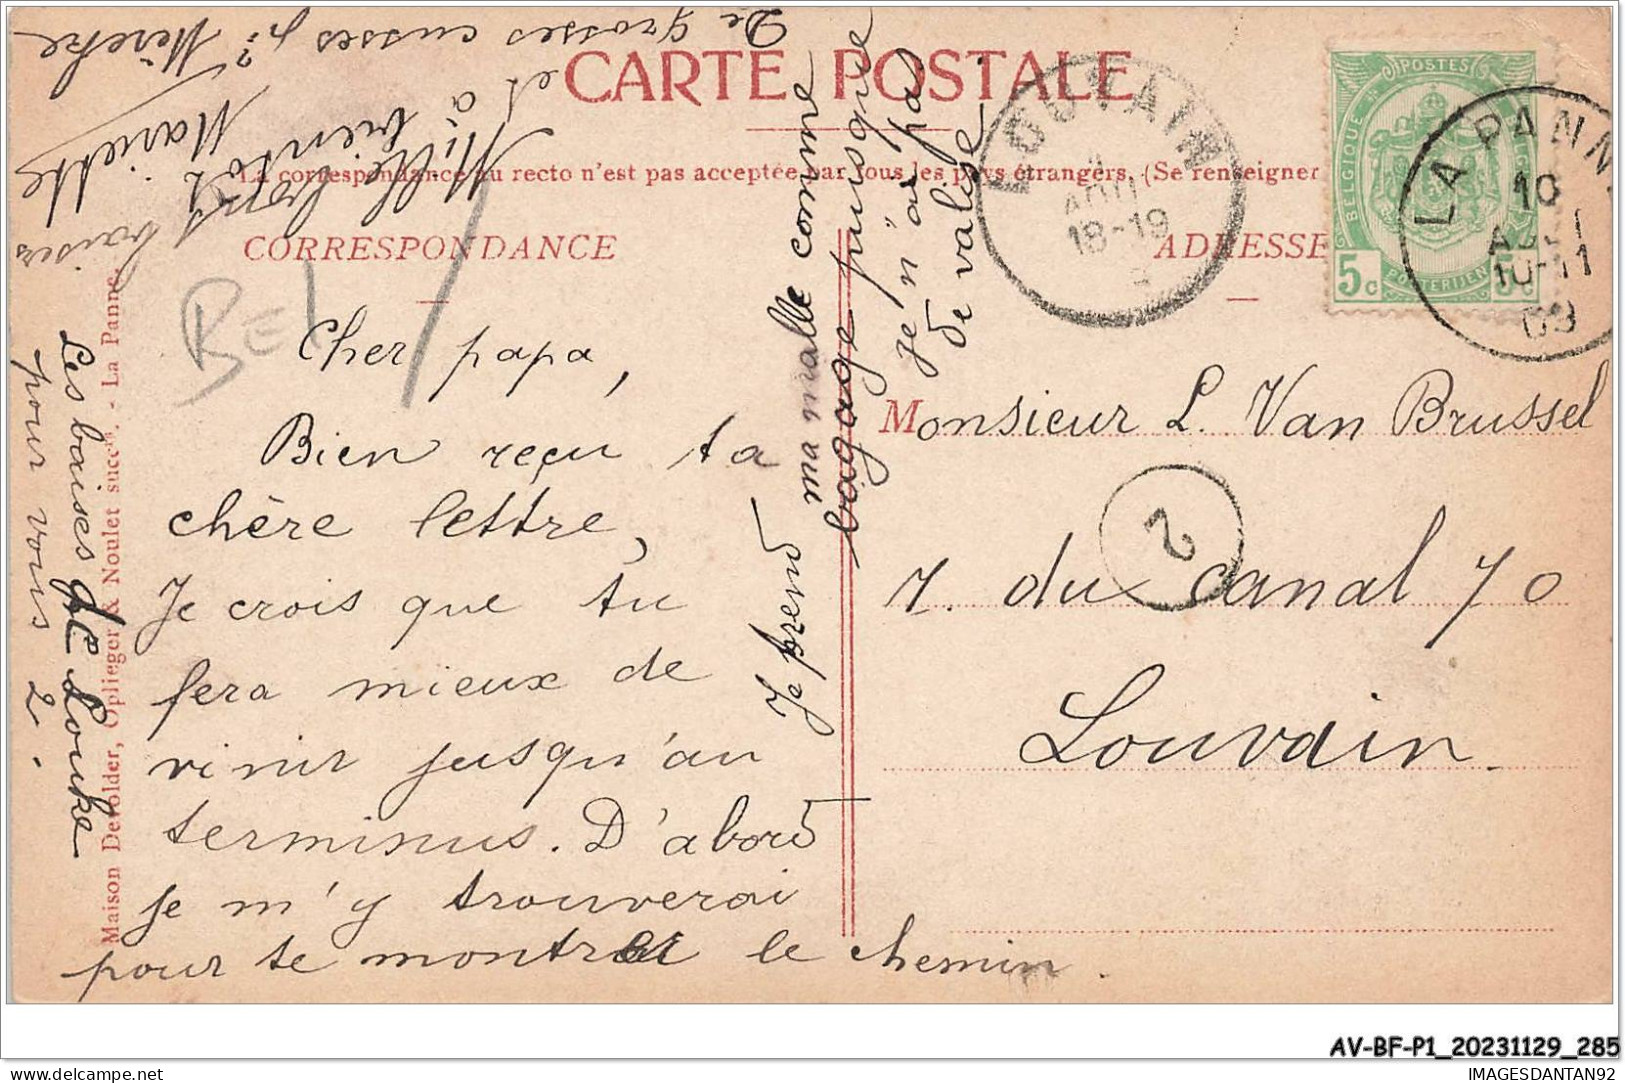 CARTE POSTALE
La correspondance au recto n'est pas acceptée par tous les pays étrangers. (Se renseigner
CORRESPONDANCE
ADRESSE
Cher papa,
Bien reçu ta
chère lettre,
Je crois que tu
fera mieux de
vinir jusqu'au
terminus. D'abord
je m'y trouverai
pour te montrer le chemin.
Je prend
ma malle comme
bagage puisque
je n'ai pas
de valise
Mille bons baisers
et à bientôt
Mariette
De grosses
Les baises de Louke
pour vous 2.
Monsieur L. Van Brussel
r. du canal 70
Louvain.
BEL
2
LOUVAIN
AOU
18-19
LA PANN
10
10-11
09
POSTES
BELGIQUE
BELGIE
POSTERIJEN
5c
5c
Maison Devolder, Oplieger & Noulet succrs. - La Panne.
AV-BF-P1_20231129_285
IMAGESDANTAN92